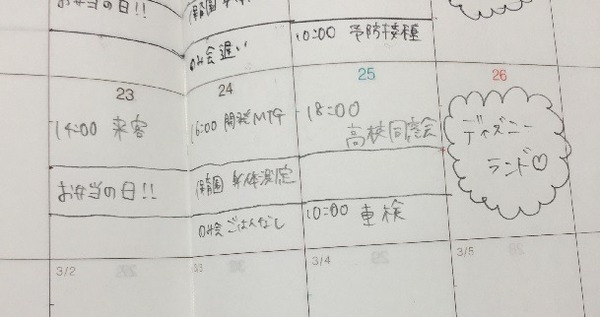 お弁当の日!!
のみ会遅い
10:00 予防接種
23
14:00 来客
お弁当の日!!
24
16:00 開発MTG
保育園 身体測定
のみ会 ごはんなし
25
18:00
高校同窓会
10:00 車検
26
ディズニー
ランド♡
3/2
3/3
3/4
3/5